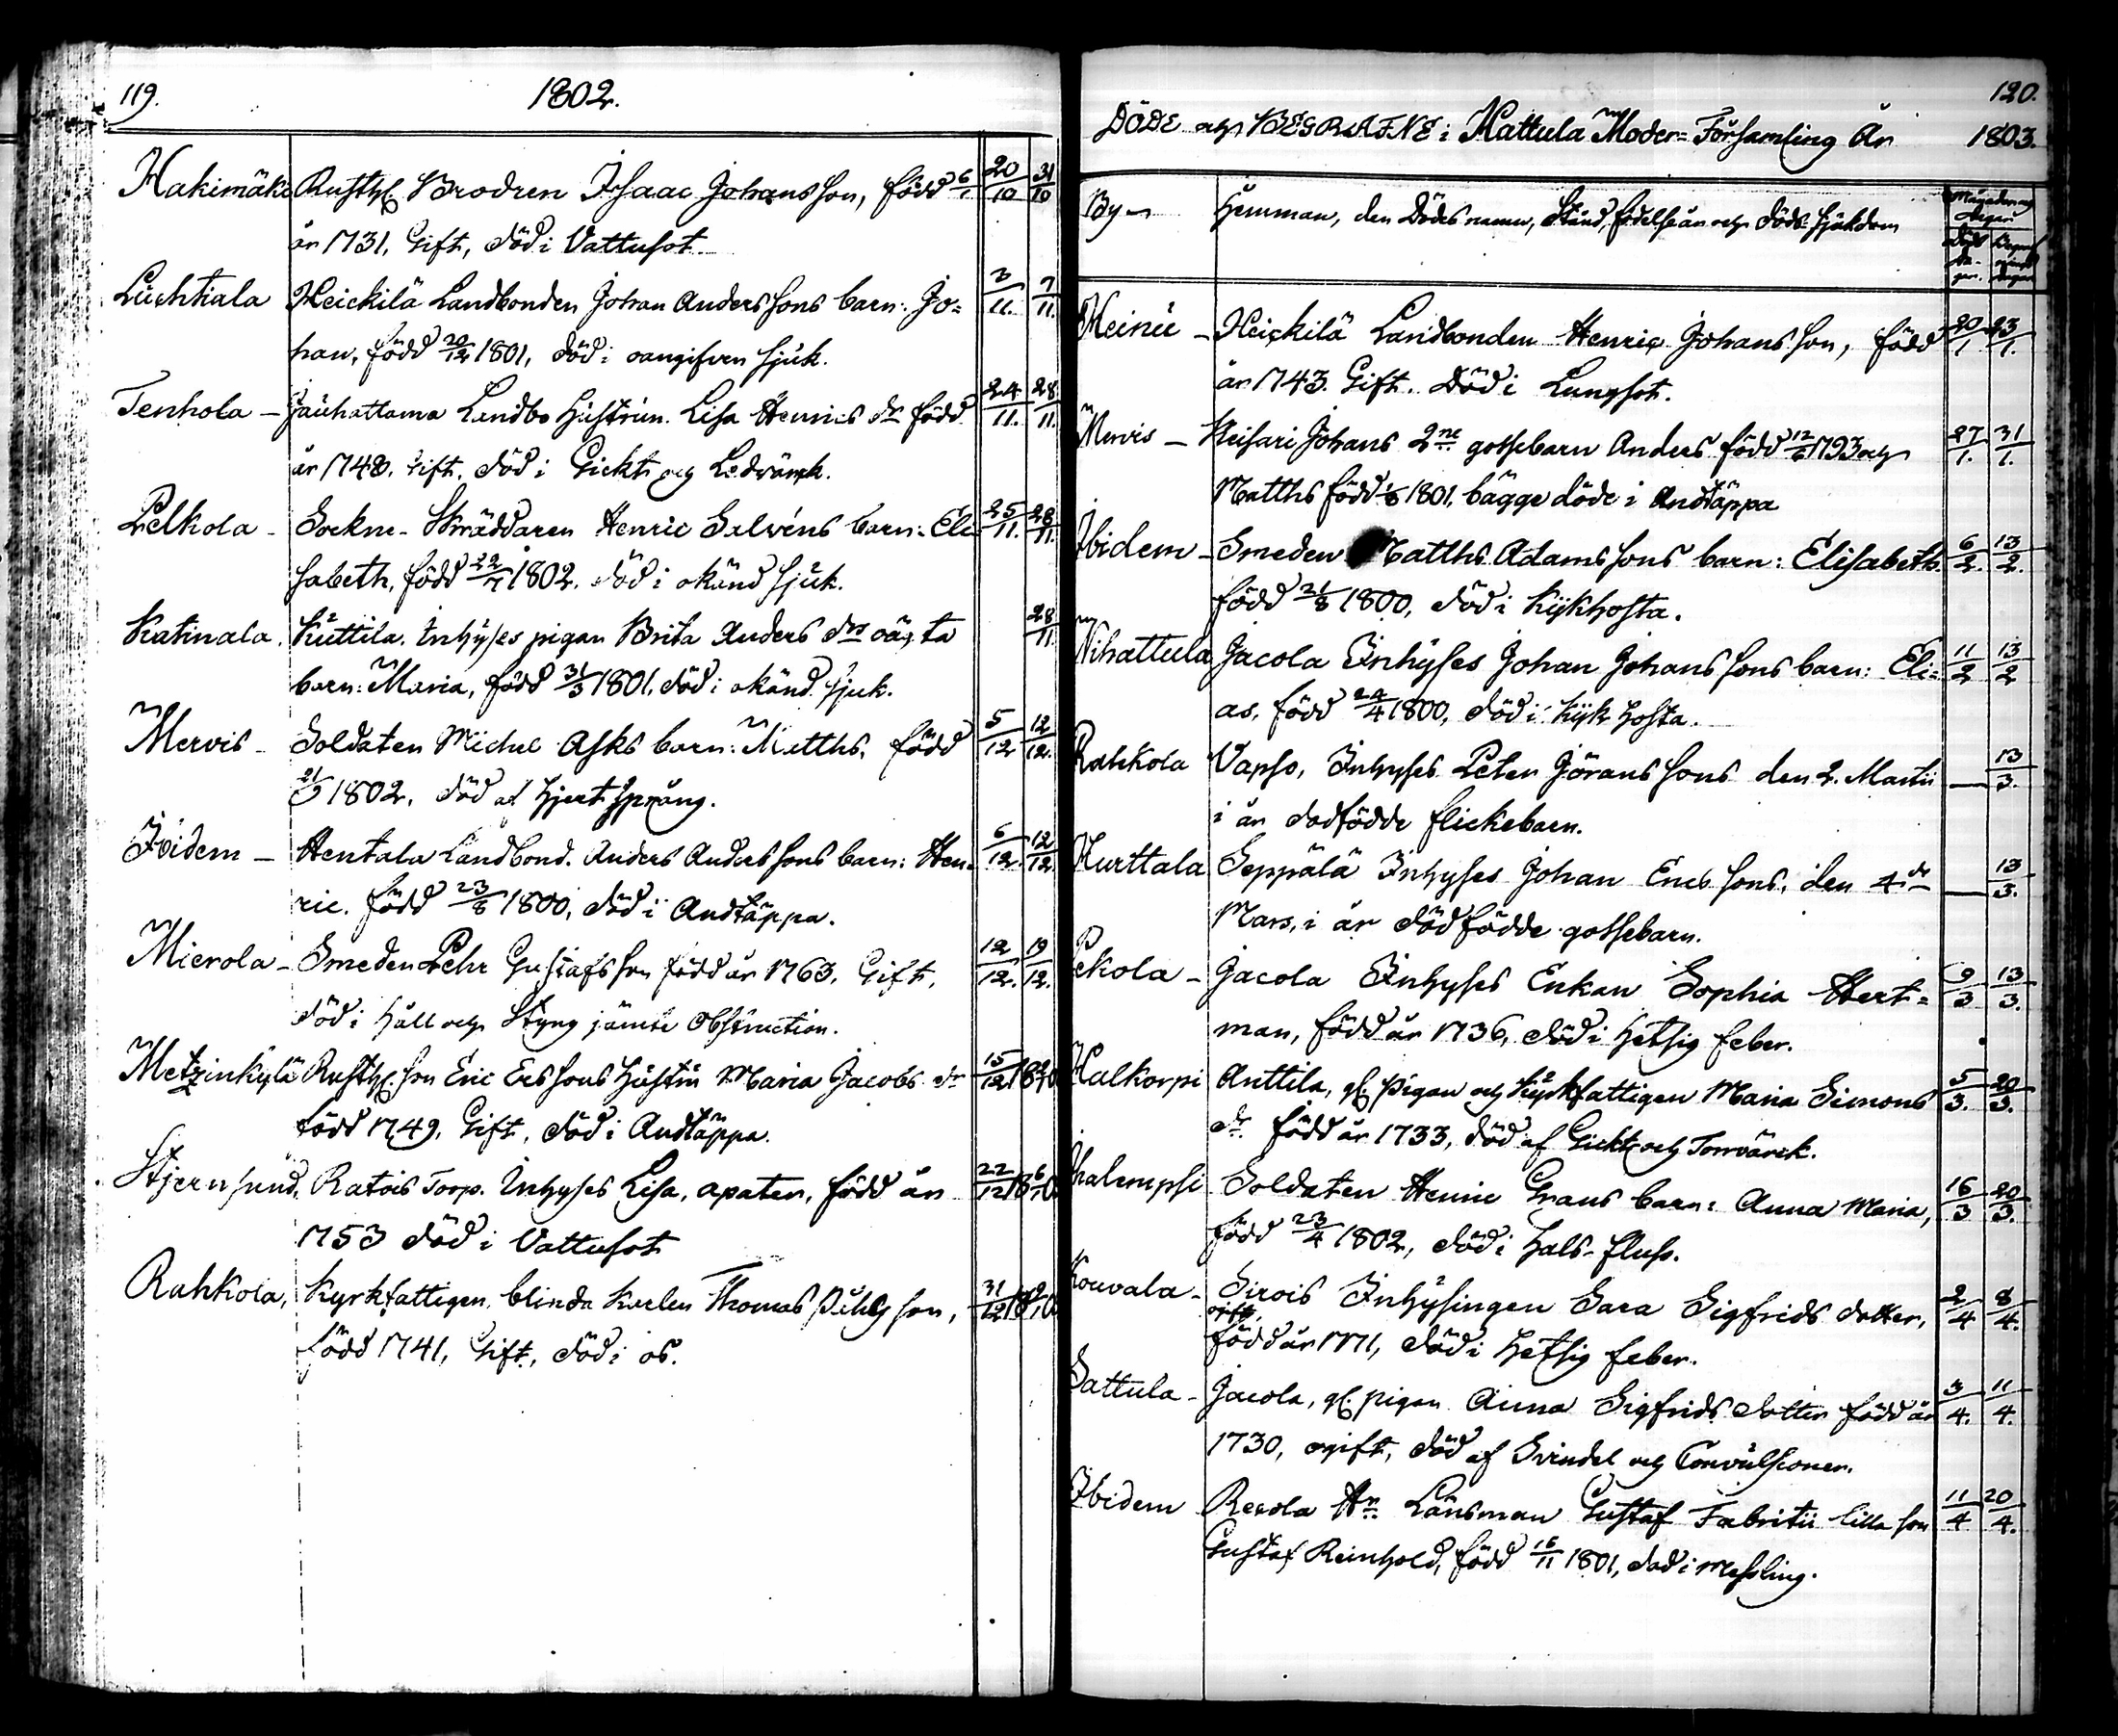 119. 1802.
Hakimäki Rusth. Brodren Isaac Johansson, född 6/1 20/10 31/10
år 1731, Gift, död i Vattusot.
Luchtiala Heickilä Landbonden Johan Anderssons barn: Jo= 3/11. 7/11.
han, född 20/12 1801, död i oangifven sjuk.
Tenhola – Jauhattama Landbo Hustrun Lisa Henrics dr född 24/11. 28/11.
år 1748, Gift, död i Gickt och Ledvärk.
Pelkola – Sockne-Skräddaren Henric Salvéns barn: Eli= 25/11. 28/11.
sabeth, född 22/7 1802, död i okänd sjuk.
Katinala. Kuttila. Inhyses pigan Brita Anders drs oägta 28/11.
barn: Maria, född 31/3 1801, död i okänd sjuk.
Mervis – Soldaten Michel Asks barn: Matths, född 5/12 12/12.
21/9 1802, död af Hjertsprång.
Ibidem – Hentala Landbond. Anders Anderssons barn: Hen= 6/12. 12/12.
ric. född 23/8 1800, död i Andtäppa.
Mierola – Smeden Pehr Gustafsson född år 1763, Gift, 12/12. 19/12.
död i Håll och Styng jämte Obstruction.
Metzinkylä Rusth. son Eric Ersssons Hustru Maria Jacobs dr 15/12
född 1749, Gift, död i Andtäppa.
Stjernsund, Ratois Torp. Inhyses Lisa, apater, född år 22/12
1753 död i Vattusot
Rahkola, Kyrkfattigen blinda Karlen Thomas Påhlsson, 31/12
född 1741, Gift, död i os.
120.
DÖDE och BEGRAFNE i Hattula Moder=Församling År 1803.
By Hemman, den Dödes namn, Stånd, födelseår och Döds-Sjukdom
Heinu – Heickilä Landbonden Henric Johansson, född 20/1 23/1.
år 1743. Gift. Död i Lungsot.
Mervis – Keisari Johans 2ne gossebarn Anders född 12/6 1793 och 27/1. 31/1.
Matths född 1/8 1801, bägge döde i Andtäppa
Ibidem – Smeden Matths Adamssons barn: Elisabeth 6/2. 13/2.
född 21/8 1800, död i Kikhosta.
Nihattula Jacola Inhyses Johan Johanssons barn: Eli= 11/2 13/2
as, född 24/4 1800, död i Kikhosta.
Rahkola Vapso, Inhyses Peter Göranssons den 2. Martii — 13/3.
i år dödfödde flickebarn.
Hurttala Seppälä Inhyses Johan Ericssons, den 4de — 13/3.
Mars, i år dödfödde gossebarn.
Pekola – Jacola Inhyses Enkan Sophia Hert= 9/3 13/3.
man, född år 1736, död i hetsig feber.
Halkorpi Anttila, gl. Pigan och Kyrkfattigen Maria Simons 5/3. 20/3.
dr. född år 1733, död af Gickt och Torrvärck.
Ihalempsi Soldaten Henric Grans barn: Anna Maria, 16/3 20/3.
född 23/4 1802, död i Hals-fluss.
Kouvala – Sirois Inhysingen Sara Sigfrids dotter, 2/4 8/4.
ogift,
född år 1771, död i Hetsig feber.
Sattula – Jacola, gl. pigan Anna Sigfrids dotter född år 3/4. 11/4.
1730, ogift, död af Svindel och Convulsioner.
Ibidem Rerola Hr. Länsman Gustaf Fabritii lilla son 11/4 20/4.
Gustaf Reinhold, född 16/11 1801, död i Messling.